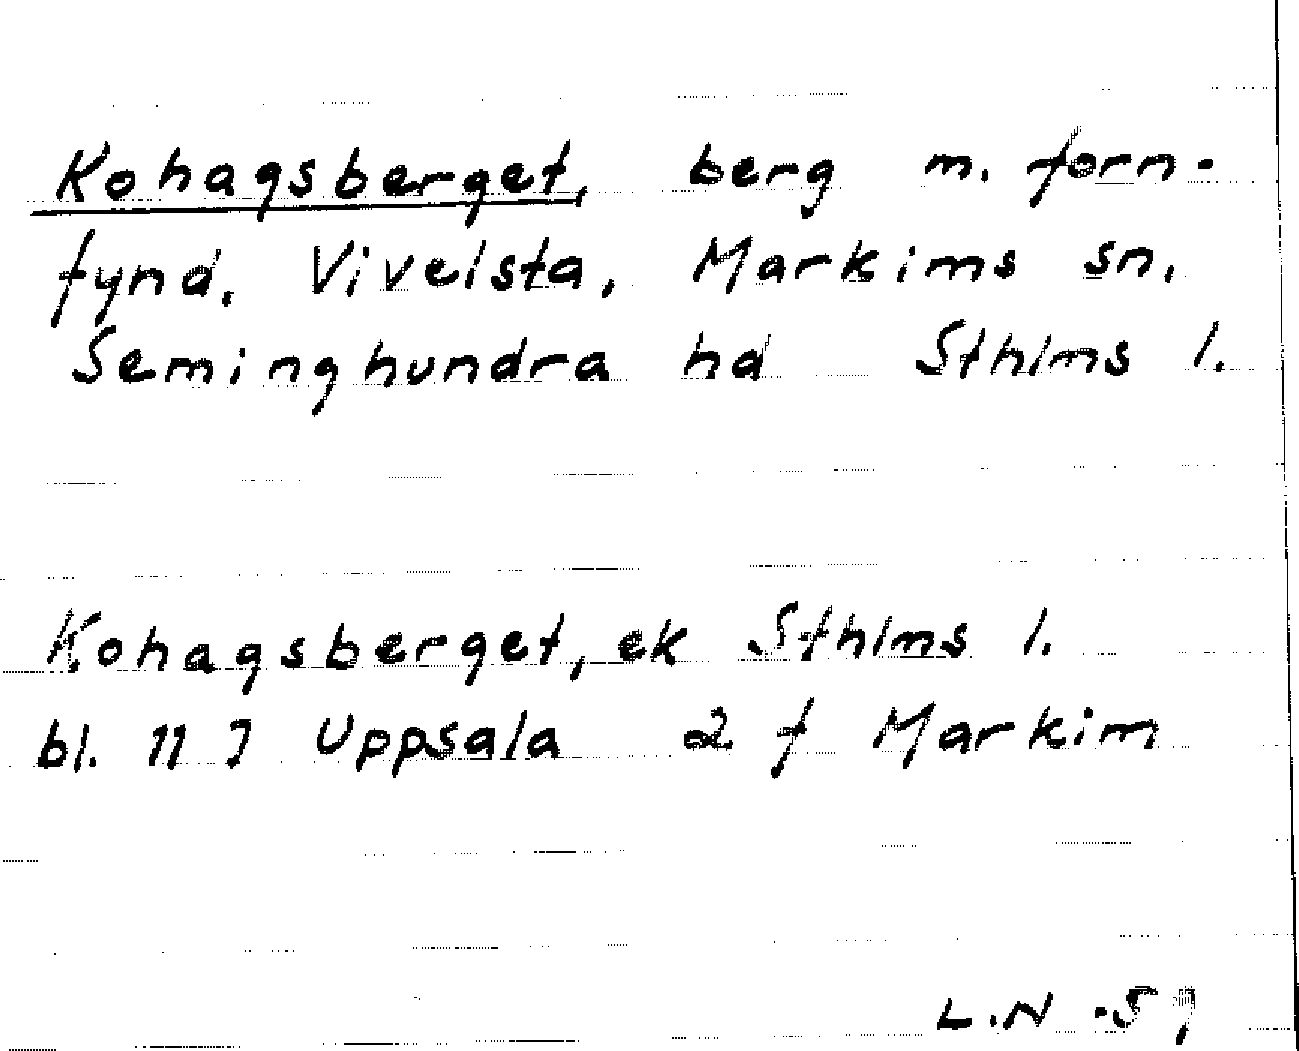 Kohagsberget, berg m. forn-
fynd. Vivelsta, Markims sn.
Seminghundra hd Sthlms l.
Kohagsberget, ek Sthlms l.
bl. 11 I Uppsala 2 f Markim
L.N -59